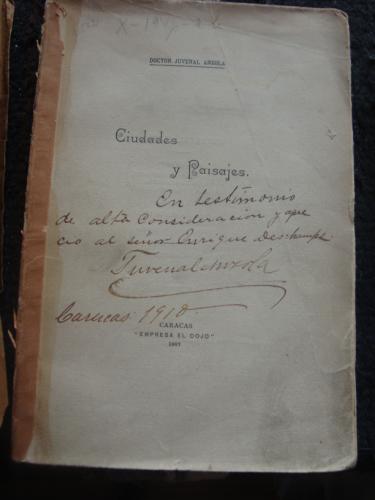 DOCTOR JUVENAL ANZOLA
Ciudades
y Paisajes.
En testimonio
de alta consideración y apre
cio al señor Enrique Deschamps.
Juvenal Anzola
Caracas 1910
CARACAS
"EMPRESA EL COJO"